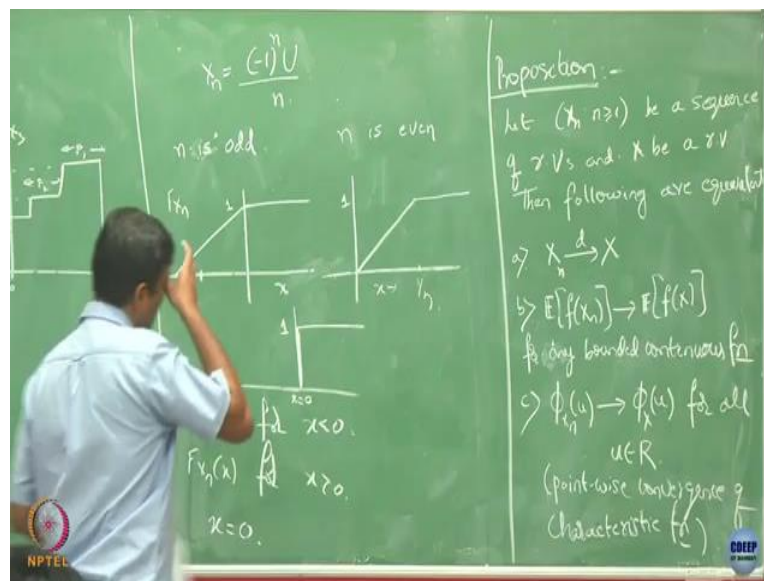 Xn = (-1)^n U
n.
n is odd
n is even
Fxn
1
x
1
x
1/n
1
x=0
for x<0.
Fxn(x) for x>0.
x=0.
Proposition:-
Let (Xn n≥1) be a sequence
of r Vs and X be a r V
Then following are equivalent
a) Xn d→ X
b) E[f(xn)] → E[f(x)]
for any bounded continuous fn
c) ϕxn(u) → ϕx(u) for all
u∈R
(point-wise convergence of
Characteristic fn)
NPTEL
CDEEP